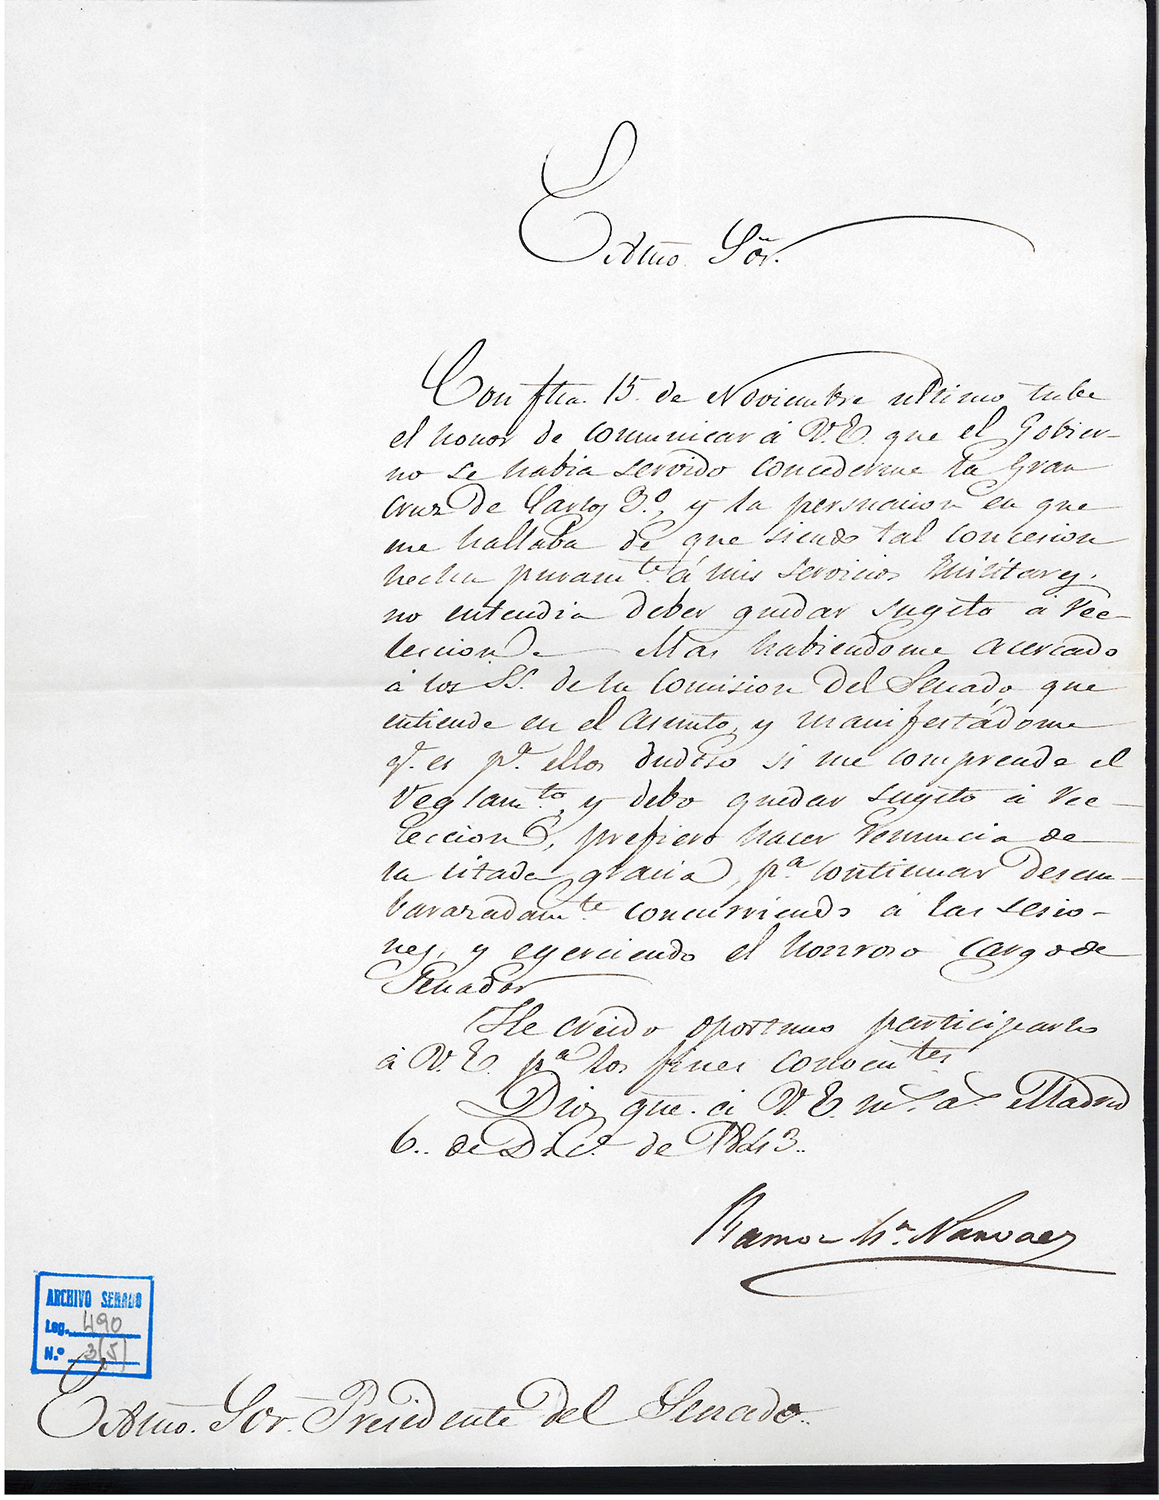 Exmo. Sõr.
Con fha. 15. de Noviembre ultimo tube
el honor de comunicar á V.E. que el Gobier-
no se habia servido concederme la Gran
Cruz de Carlos 3º, y la persuacion en que
me hallaba de que siendo tal concesion
hecha puramte. á mis servicios Militares.
no entendia deber quedar sugeto á ree-
leccion. Mas habiendome acercado
á los SS. de la Comision del Senado, que
entiende en el asunto, y manifestádome
q.e es p.a ellos dudoso si me comprende el
reglam.to, y debo quedar sugeto á ree-
leccion, prefiero hacer renuncia de
la citada gracia, p.a continuar desem-
barazadam.te concurriendo á las sesio-
nes, y egerciendo el honroso cargo de
Senador
He creido oportuno participarlo
á V.E. p.a los fines conven.tes
Dios gue. á V.E. m.s a.s Madrid
6.. de Dic.e de 1843..
Ramon M.a Narvaez
ARCHIVO SENADO
Leg. 490
N.º 3(5)
Exmo. Sor. Presidente del Senado..